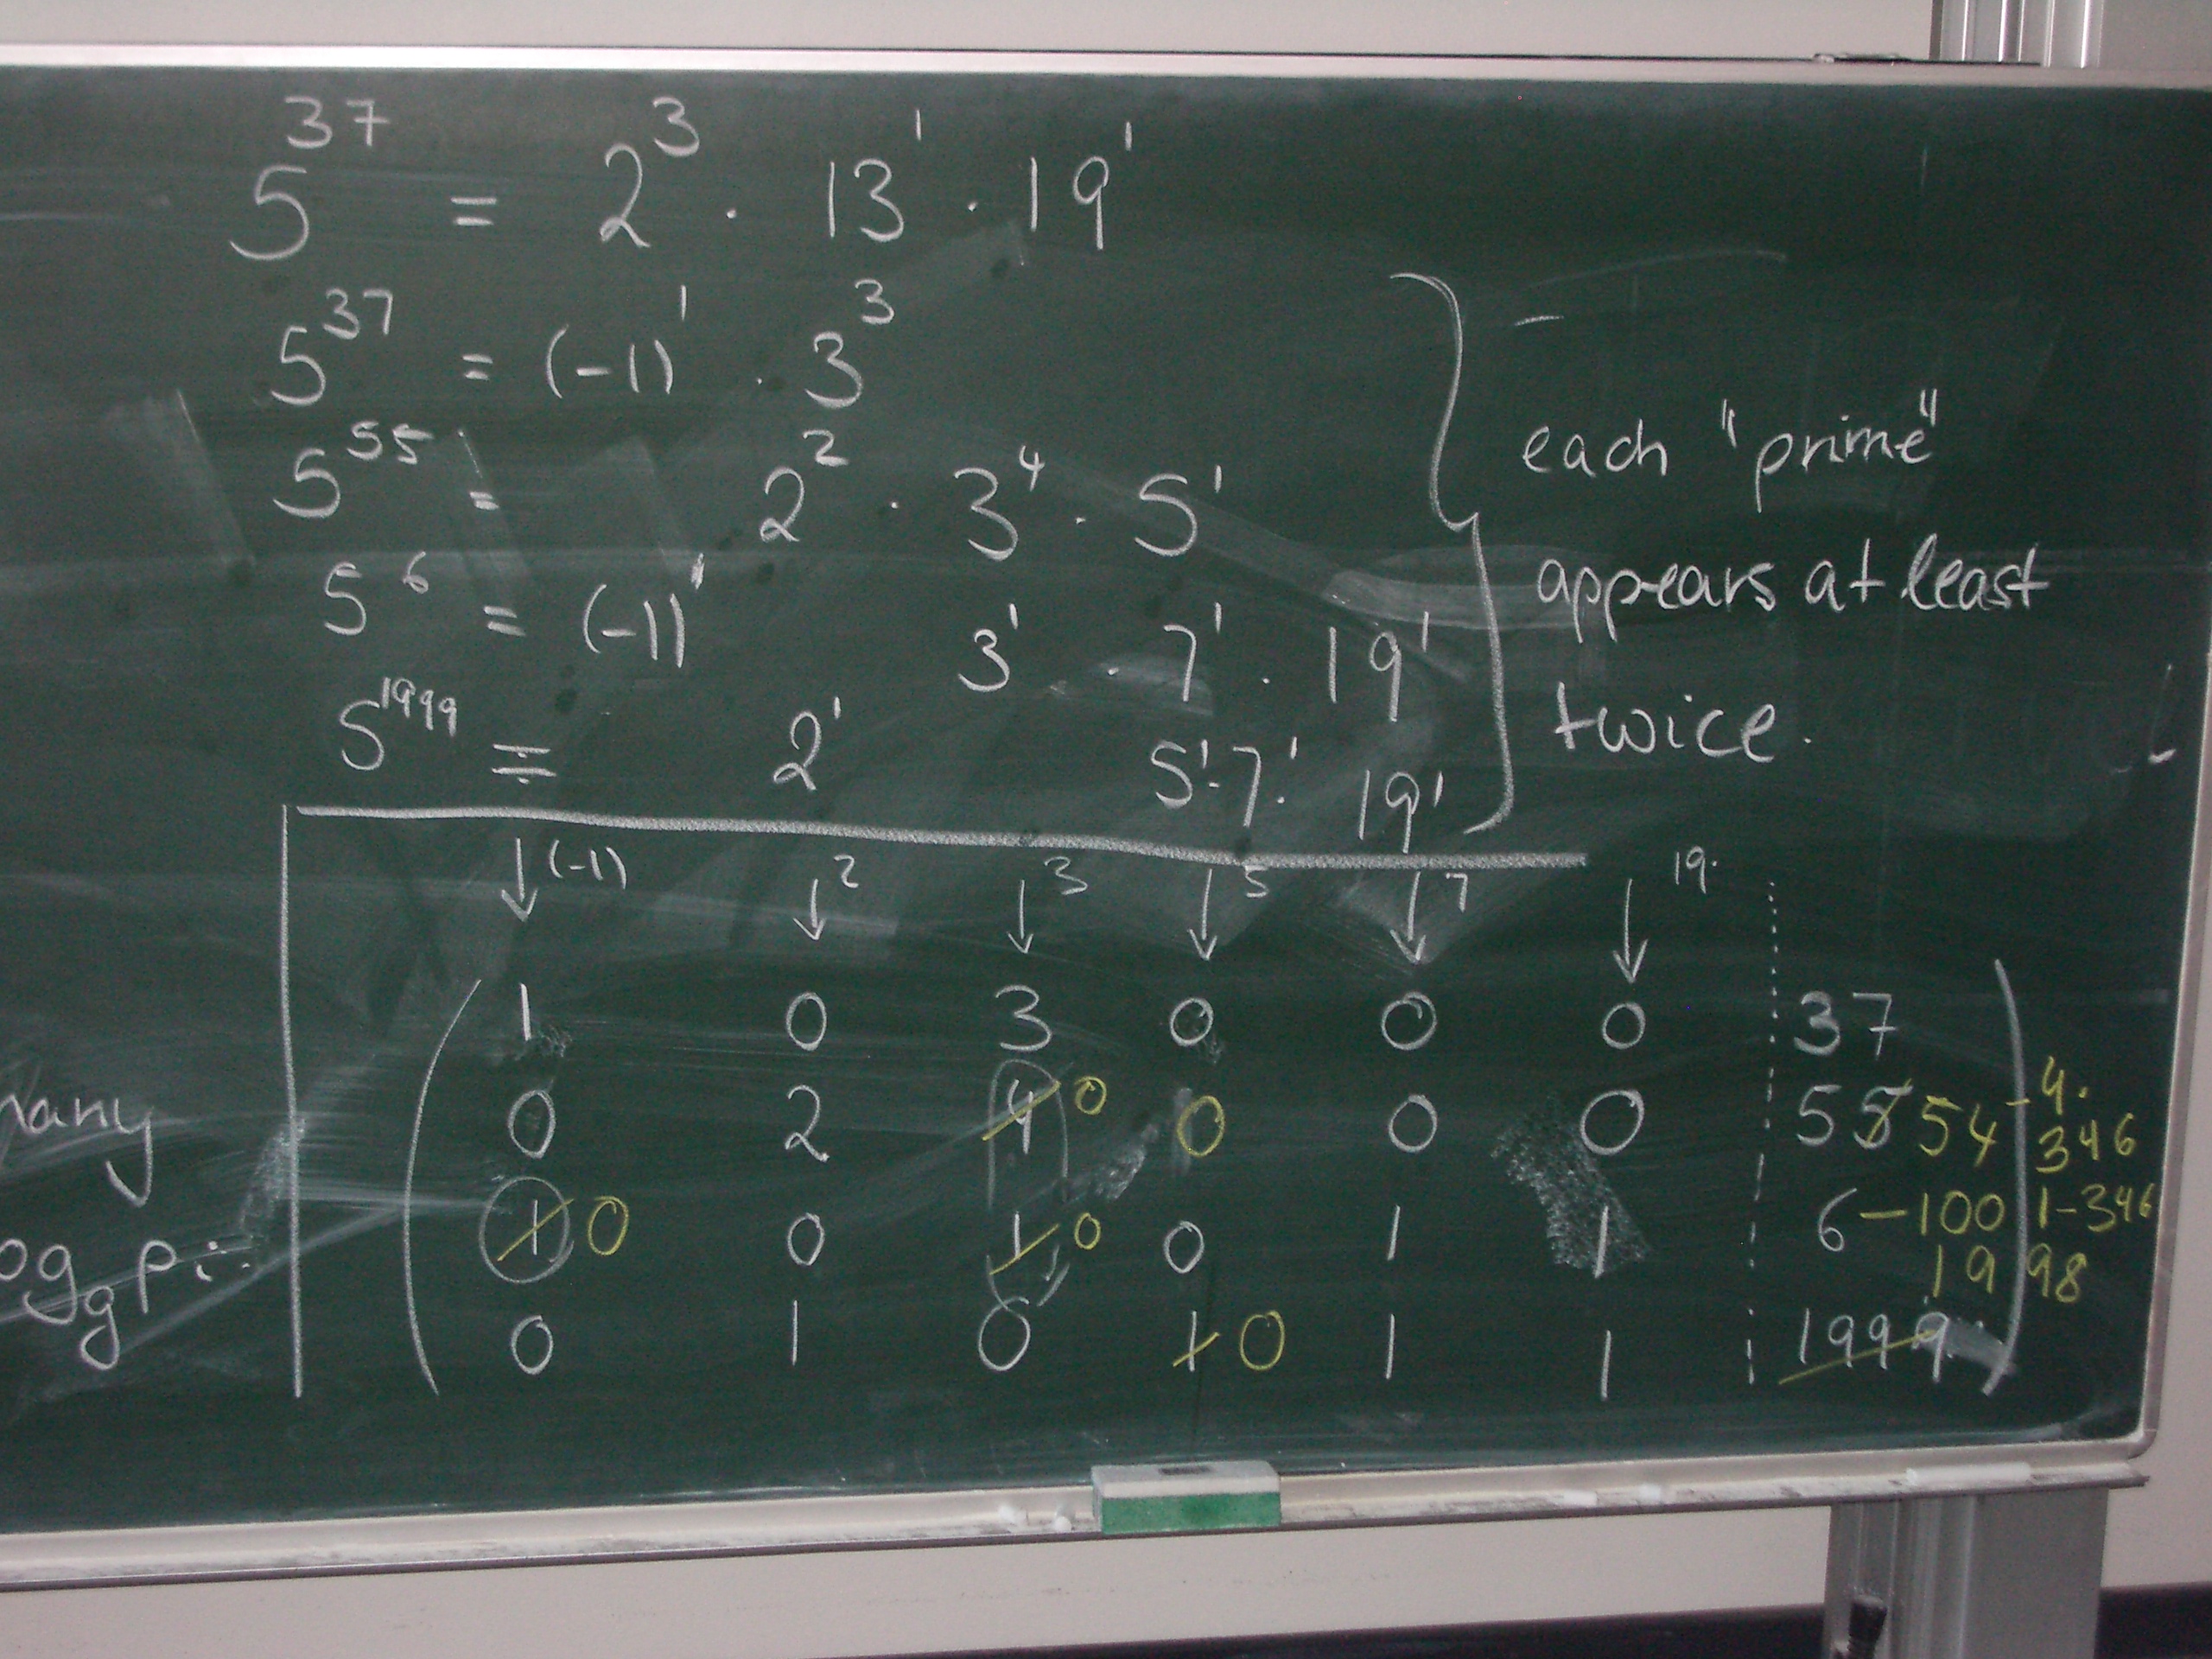 5^37 = 2^3 · 13^1 · 19^1
5^37 = (-1)^1 · 3^3
5^55 = 2^2 · 3^4 · 5^1
5^6 = (-1)^1 3^1 · 7^1 · 19^1
5^1999 = 2^1 5^1·7^1· 19^1
each "prime"
appears at least
twice.
(-1) 2 3 5 7 19.
1 0 3 0 0 0 37
0 2 4 0 0 0 0 55 54 -4·
346
1 0 0 1 0 0 1 1 6-1001-346
1998
0 1 0 1 0 1 1 1999